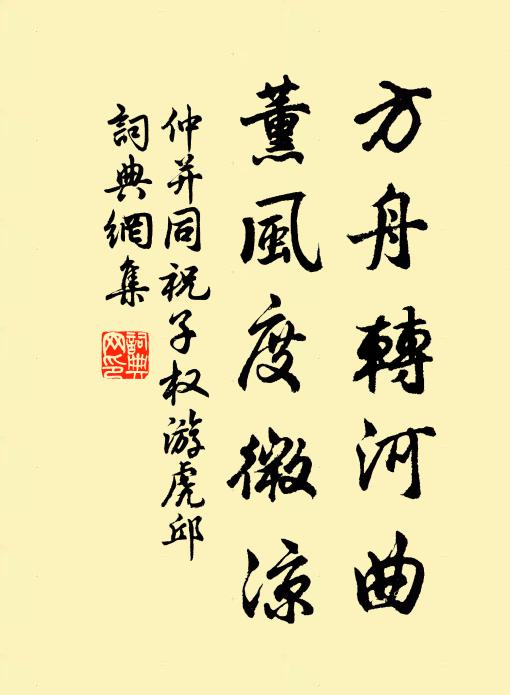 方舟轉河曲
薰風度微涼
仲并同祝子权游虎邱
詞典網集
詞典网印